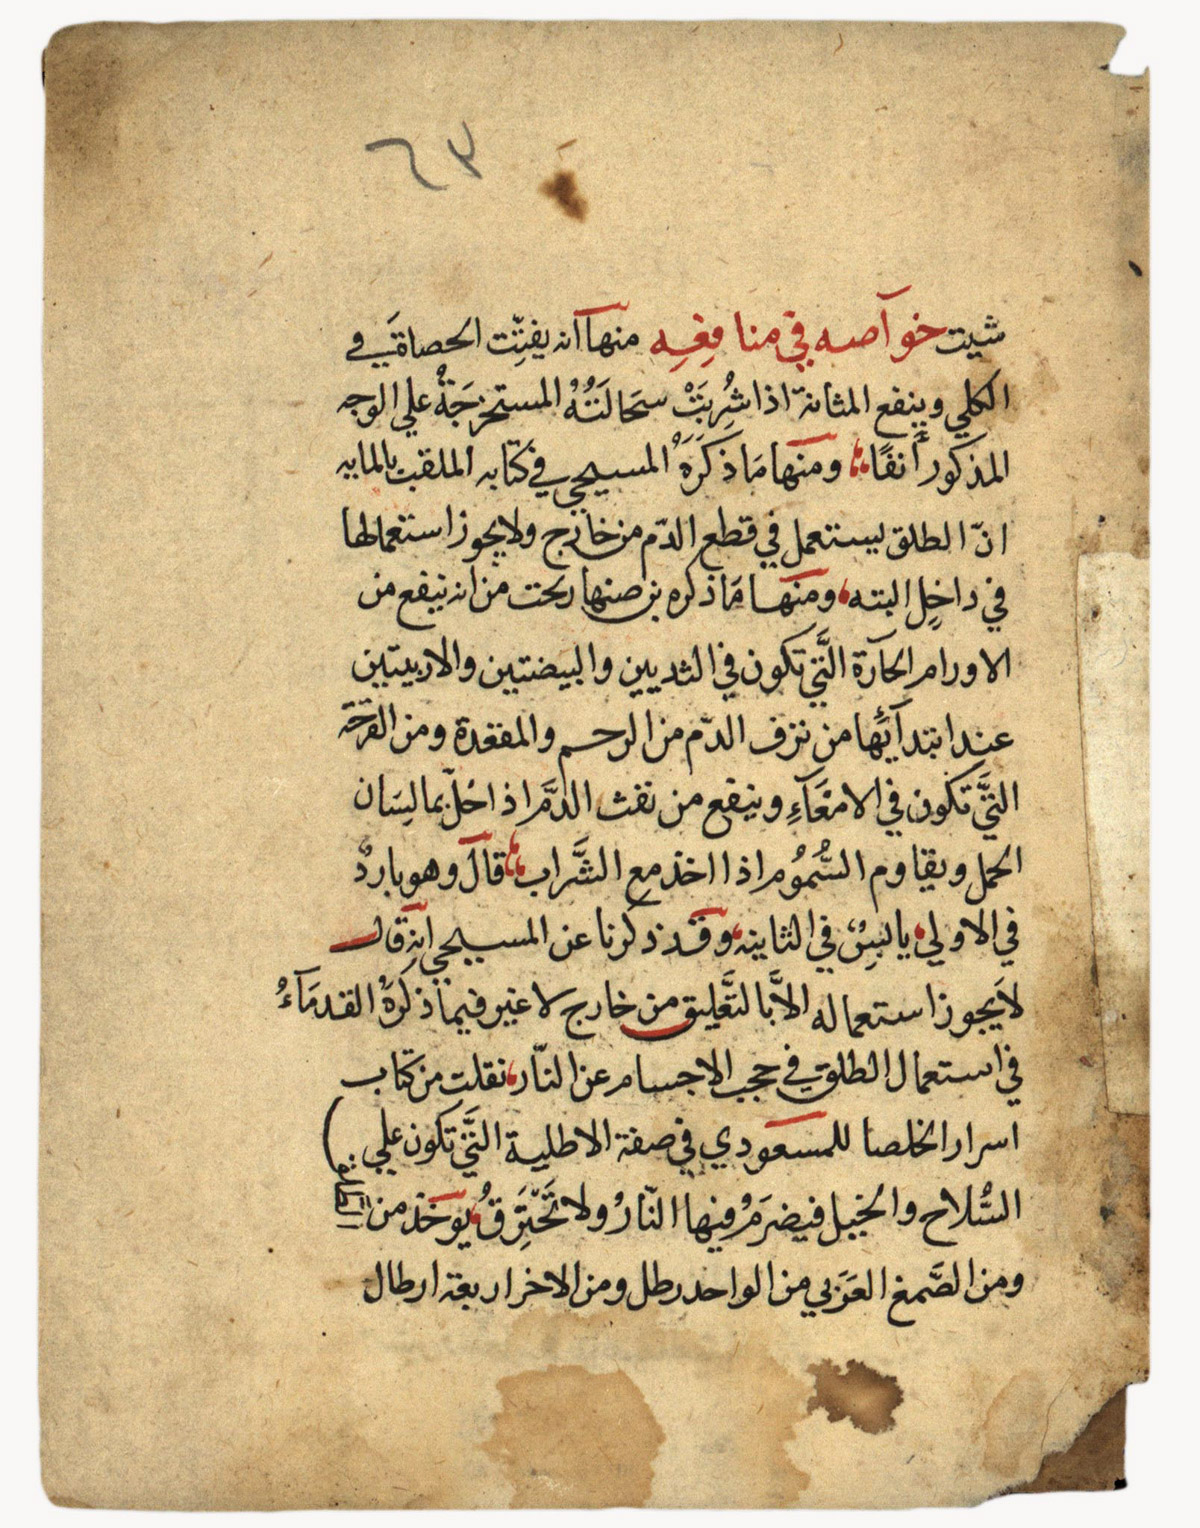 ٦٣
شيت خوآصه في منافعه منها انه يفتِّت الحصاة في
الكلي وينفع المثانة اذا شُرِبَتْ سحَالَتُهُ المستخرَجَةُ علي الوجه
المذكور أنفًا ومنها مَا ذكَرَهُ المسيحي في كتابه الملقب بالمايه
انّ الطلق يستعمل في قطع الدّم من خارج ولا يجوز استعمالها
في داخِلٍ البته ومنها مَا ذكره بن صنهاربخت من انه ينفع من
الاورام الحارّة الَّتي تكون في الثديين والبيضتين والاربيتين
عند ابتدآئها من نزف الدّم من الرحم والمقعدة ومن القرحَة
التَّي تكون في الامعَآءِ وينفع من نفث الدَّم اذ احُلّ بما لِسَان
الحمل ويقاوم السُّمُومُ اذا اخذ مع الشَّراب قالَ وهو باردٌ
في الاولي يابسٌ في الثانيه وقد ذكرنا عن المسيحي انه قال
لَا يجوز استعماله الاَّ بالتَّعليق من خارج لا غير فيما ذكَرَهُ القدمَآءُ
في استعمال الطلق في حجب الاجسام عن النّار نقلت من كتاب
اسرار الخلصا للمسعودي في صفة الاطلية التَّي تكون علي
السُّلاح والخيل فيضرَمُ فيها النّارُ ولا تَحْتَرِقُ يوخَذ من
ومن الصَّمغ العَرَبي من الواحد رطل ومن الاخر اربعة ارطال